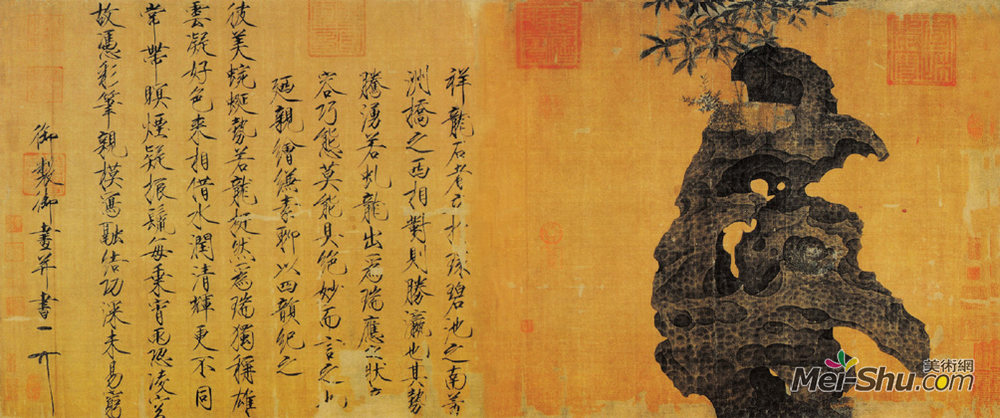 祥龍石者立於環碧池之南芳
洲橋之西相對則勝瀛也其勢
騰湧若虬龍出爲瑞應之狀奇
容巧態莫能具絕妙而言之也
廼親繪縑素聊以四韻紀之
彼美蜿蜒勢若龍挺然爲瑞獨稱雄
雲凝好色來相借水潤清輝更不同
常帶暝煙疑振鬣每乘宵雨恐凌空
故憑彩筆親模寫融結功深未易窮
御製御畫并書
美術網
Mei-Shu.com